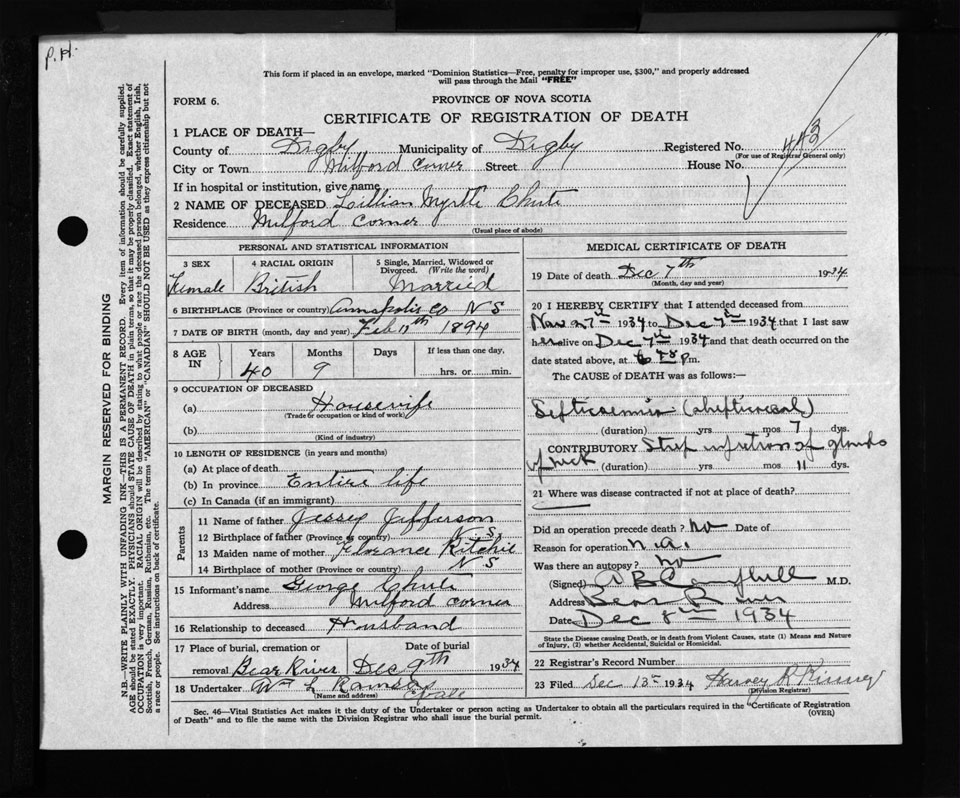 P.H.
This form if placed in an envelope, marked "Dominion Statistics—Free, penalty for improper use, $300," and properly addressed
will pass through the Mail "FREE"
FORM 6.
PROVINCE OF NOVA SCOTIA
CERTIFICATE OF REGISTRATION OF DEATH
1 PLACE OF DEATH—
County of Digby Municipality of Digby Registered No. 443
(For use of Registrar General only)
City or Town Milford Corner Street House No.
If in hospital or institution, give name
2 NAME OF DECEASED Lillian Myrtle Chute
Residence Milford Corner
(Usual place of abode)
MARGIN RESERVED FOR BINDING
N.B—WRITE PLAINLY WITH UNFADING INK—THIS IS A PERMANENT RECORD. Every item of information should be carefully supplied.
AGE should be stated EXACTLY. PHYSICIANS should STATE CAUSE OF DEATH in plain terms, so that it may be properly classified. Exact statement of
OCCUPATION is very important. RACIAL ORIGIN will be described by stating to what people or race the deceased person belonged, whether English, Irish,
Scottish, French, German, Russian, Ruthenian, etc. The terms "AMERICAN" or "CANADIAN" SHOULD NOT BE USED as they express citizenship but not
a race or people. See instructions on back of certificate.
PERSONAL AND STATISTICAL INFORMATION
3 SEX 4 RACIAL ORIGIN 5 Single, Married, Widowed or
Divorced. (Write the word)
Female British Married
6 BIRTHPLACE (Province or country) Annapolis Co N S
7 DATE OF BIRTH (month, day and year) Feb 1894
8 AGE IN Years Months Days If less than one day,
40 9 hrs. or min.
9 OCCUPATION OF DECEASED
(a) Housewife
(Trade or occupation or kind of work)
(b)
(Kind of industry)
10 LENGTH OF RESIDENCE (in years and months)
(a) At place of death
(b) In province Entire life
(c) In Canada (if an immigrant)
Parents
11 Name of father Jessey Jefferson
12 Birthplace of father (Province or country) N.S.
13 Maiden name of mother Florance Ritchie
14 Birthplace of mother (Province or country) N S
15 Informant's name George Chute
Address Milford Corner
16 Relationship to deceased Husband
17 Place of burial, cremation or Date of burial
removal Bear River Dec 9th 1934
18 Undertaker Wm L Ramsay
(Name and address)
MEDICAL CERTIFICATE OF DEATH
19 Date of death Dec 7th 1934
(Month, day and year)
20 I HEREBY CERTIFY that I attended deceased from
Nov 27th 1934 to Dec 7th 1934 that I last saw
her alive on Dec 7th 1934 and that death occurred on the
date stated above, at p m.
The CAUSE of DEATH was as follows:—
Septicaemia
(duration) yrs mos 7 dys.
CONTRIBUTORY Strep infection of glands
of neck (duration) yrs mos 11 dys.
21 Where was disease contracted if not at place of death?
Did an operation precede death? no Date of
Reason for operation n.a.
Was there an autopsy? no
(Signed) Campbell M.D.
Address Bear River
Date Dec 8th 1934
State the Disease causing Death, or in death from Violent Causes, state (1) Means and Nature
of Injury, (2) whether Accidental, Suicidal or Homicidal.
22 Registrar's Record Number
23 Filed Dec 13th 1934 Harvey
(Division Registrar)
Sec. 46—Vital Statistics Act makes it the duty of the Undertaker or person acting as Undertaker to obtain all the particulars required in the "Certificate of Registration
of Death" and to file the same with the Division Registrar who shall issue the burial permit.
(OVER)